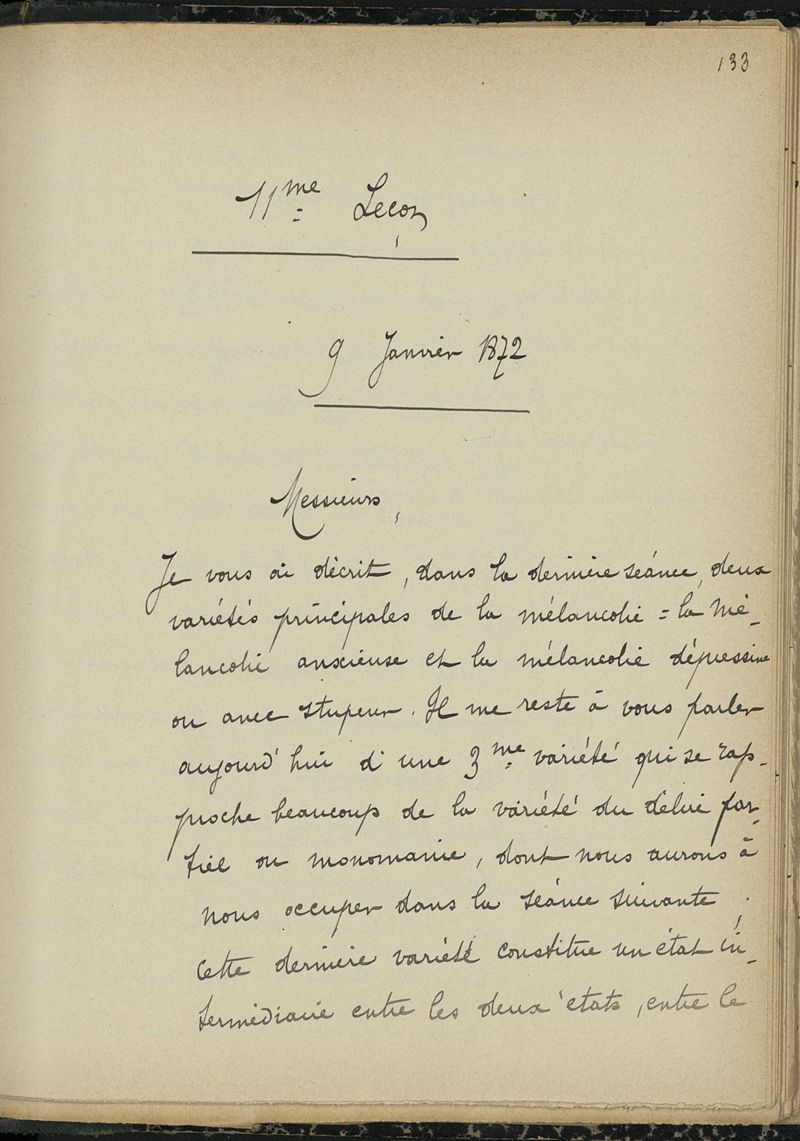 133
11me Leçon
9 Janvier 1872
Messieurs,
Je vous ai décrit, dans la dernière séance, deux
variétés principales de la mélancolie = la mé-
lancolie anxieuse et la mélancolie dépressive
ou avec stupeur. Il me reste à vous parler
aujourd'hui d'une 3me variété qui se rap-
proche beaucoup de la variété du délire par-
tiel ou monomanie, dont nous aurons à
nous occuper dans la séance suivante ;
cette dernière variété constitue un état in-
termédiaire entre les deux états, entre le